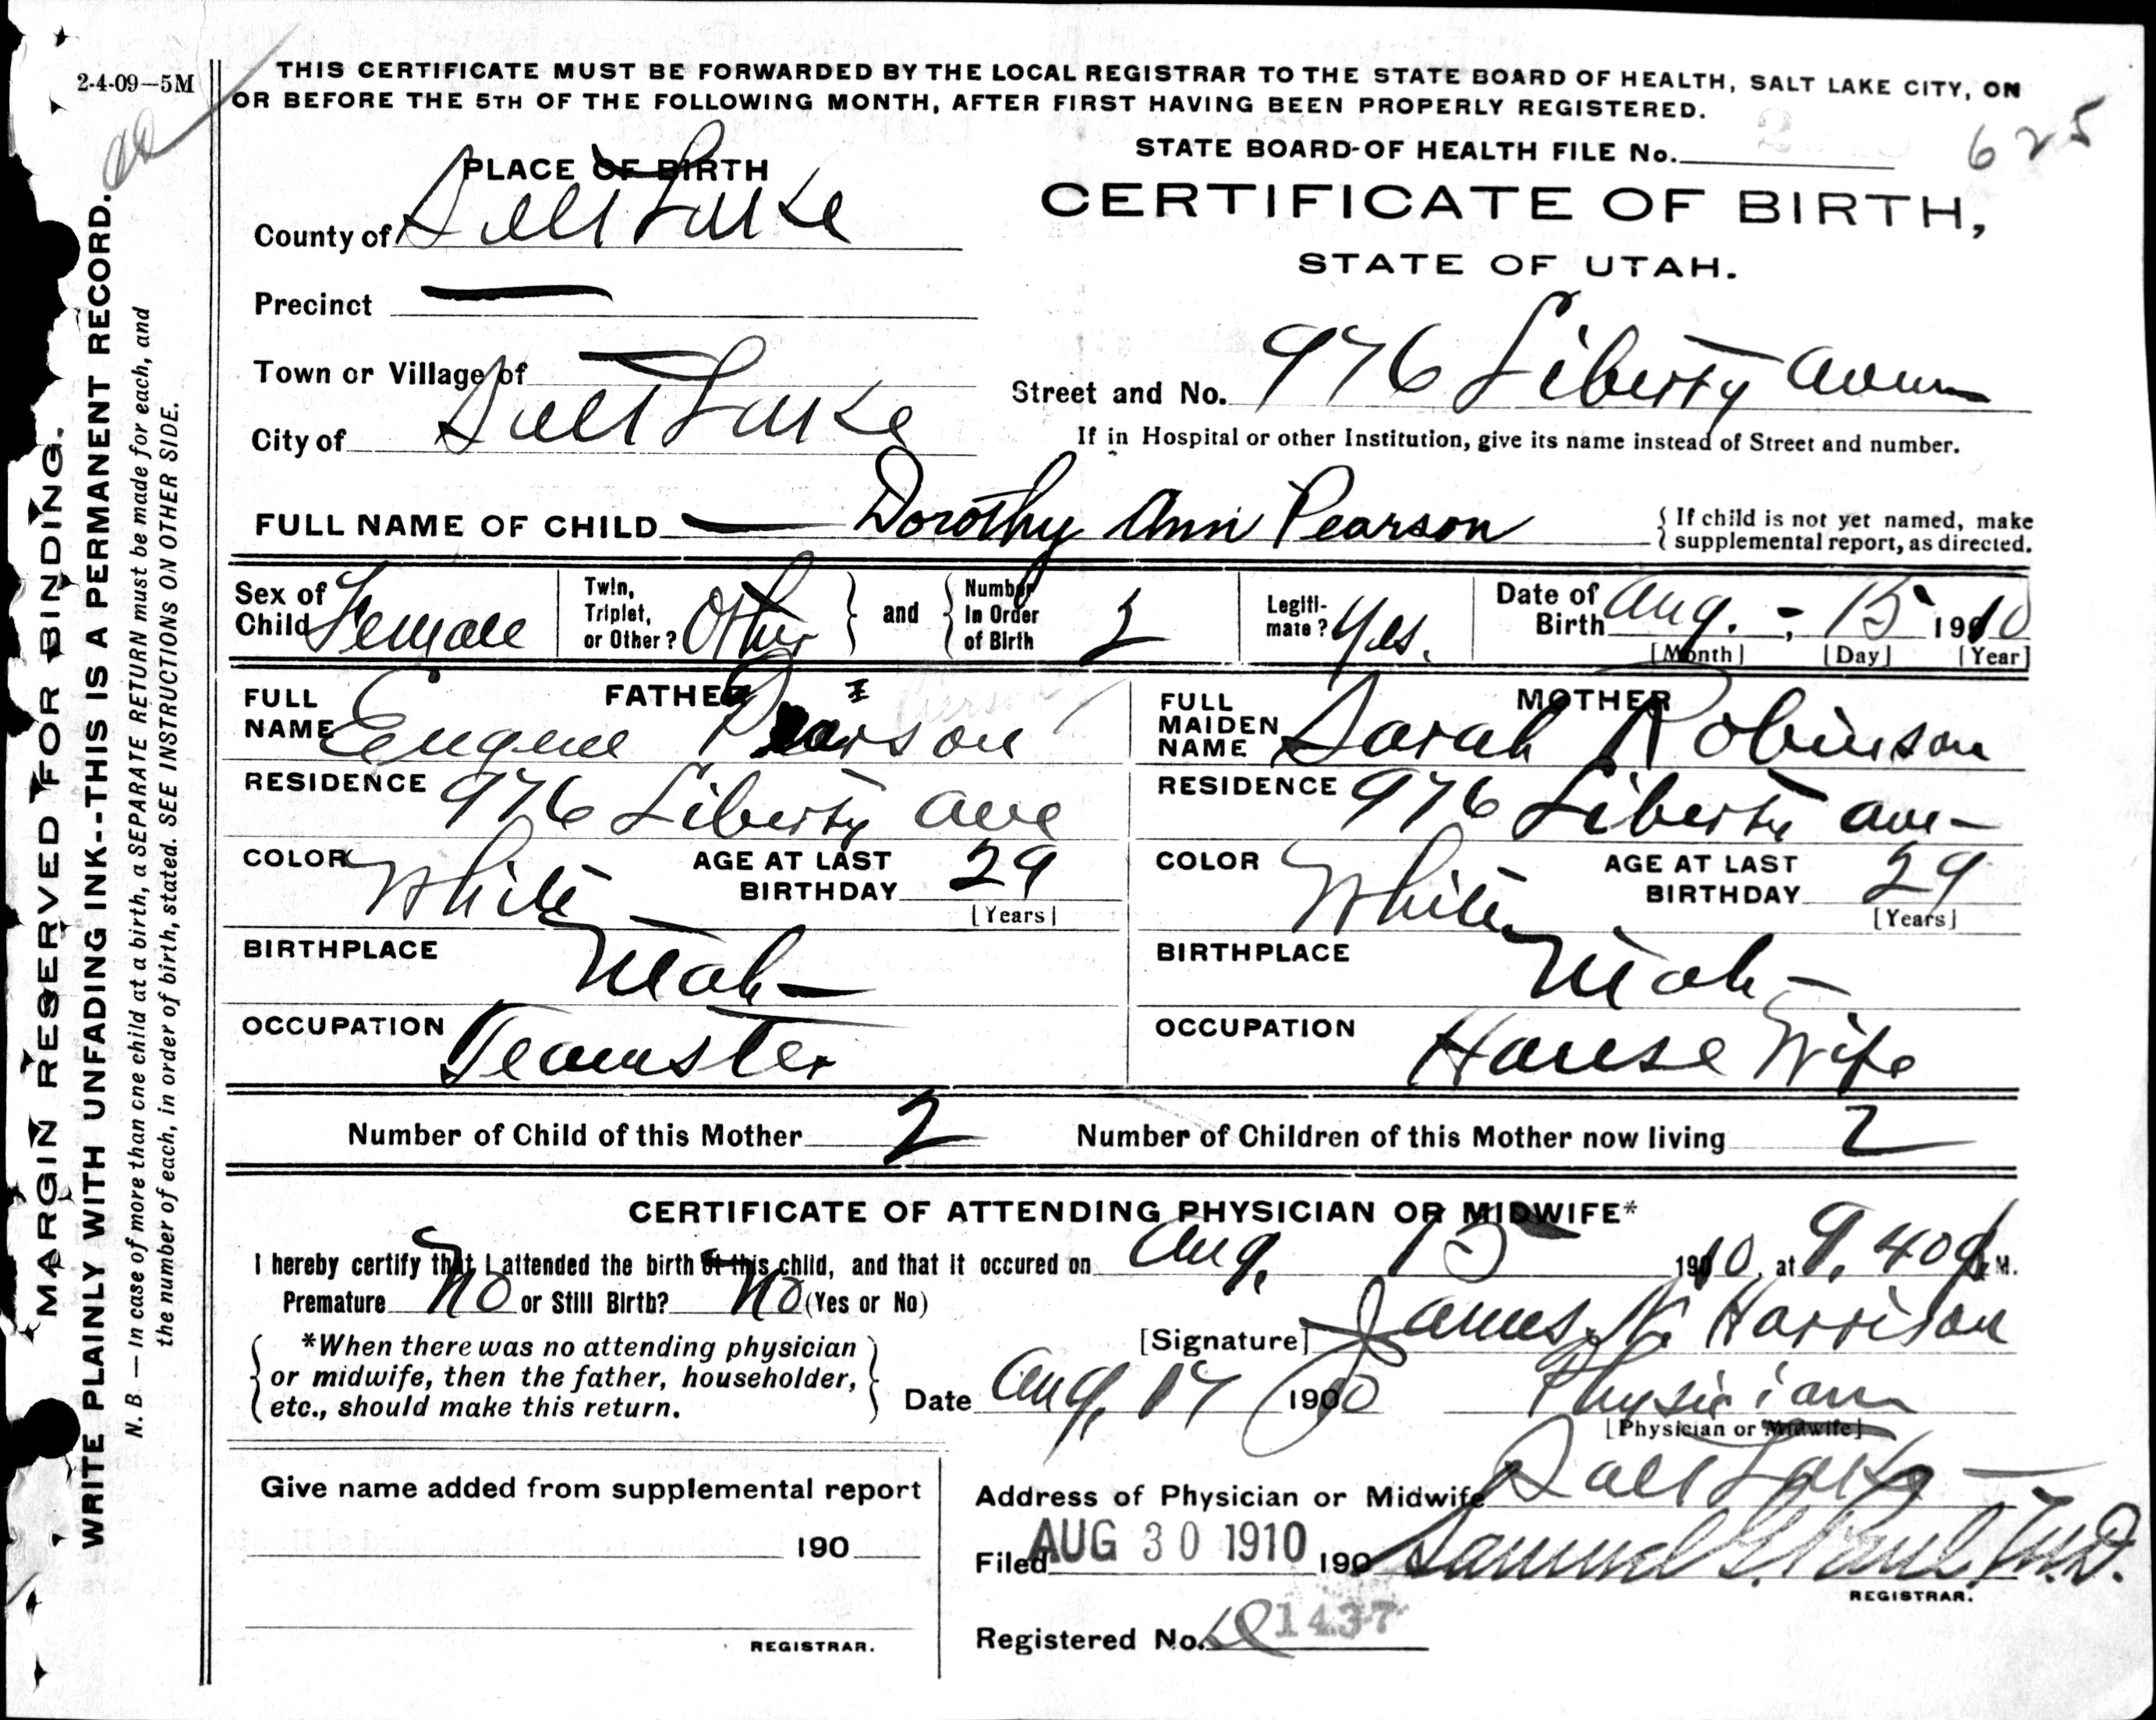 2-4-09—5M
THIS CERTIFICATE MUST BE FORWARDED BY THE LOCAL REGISTRAR TO THE STATE BOARD OF HEALTH, SALT LAKE CITY, ON
OR BEFORE THE 5TH OF THE FOLLOWING MONTH, AFTER FIRST HAVING BEEN PROPERLY REGISTERED.
MARGIN RESERVED FOR BINDING.
WRITE PLAINLY WITH UNFADING INK--THIS IS A PERMANENT RECORD.
N. B. — In case of more than one child at a birth, a SEPARATE RETURN must be made for each, and
the number of each, in order of birth, stated. SEE INSTRUCTIONS ON OTHER SIDE.
PLACE OF BIRTH
STATE BOARD OF HEALTH FILE No. 625
CERTIFICATE OF BIRTH,
STATE OF UTAH.
County of Salt Lake
Precinct —
Town or Village of —
Street and No. 976 Liberty Avenue
City of Salt Lake
If in Hospital or other Institution, give its name instead of Street and number.
FULL NAME OF CHILD — Dorothy Ann Pearson
{ If child is not yet named, make
supplemental report, as directed.
Sex of Child Female
Twin, Triplet, or Other? Other } and { Number in Order of Birth 2
Legitimate? Yes.
Date of Birth Aug. - 15 1910
[Month] [Day] [Year]
FATHER
FULL NAME Eugene Pearson
RESIDENCE 976 Liberty Ave
COLOR White AGE AT LAST BIRTHDAY 29
[Years]
BIRTHPLACE Utah —
OCCUPATION Teamster
MOTHER
FULL MAIDEN NAME Sarah Robinson
RESIDENCE 976 Liberty Ave —
COLOR White AGE AT LAST BIRTHDAY 29
[Years]
BIRTHPLACE Utah —
OCCUPATION House Wife
Number of Child of this Mother 2 Number of Children of this Mother now living 2
CERTIFICATE OF ATTENDING PHYSICIAN OR MIDWIFE*
I hereby certify that I attended the birth of this child, and that it occured on Aug. 15 1910, at 9.40 M.
Premature No or Still Birth? No (Yes or No)
{ *When there was no attending physician
or midwife, then the father, householder,
etc., should make this return. }
[Signature] James N. Harrison
Date Aug. 17 1910 Physician
[Physician or Midwife]
Give name added from supplemental report
190
REGISTRAR.
Address of Physician or Midwife Salt Lake —
Filed AUG 30 1910 190 Samuel G. Paul, M.D.
REGISTRAR.
Registered No. 1437